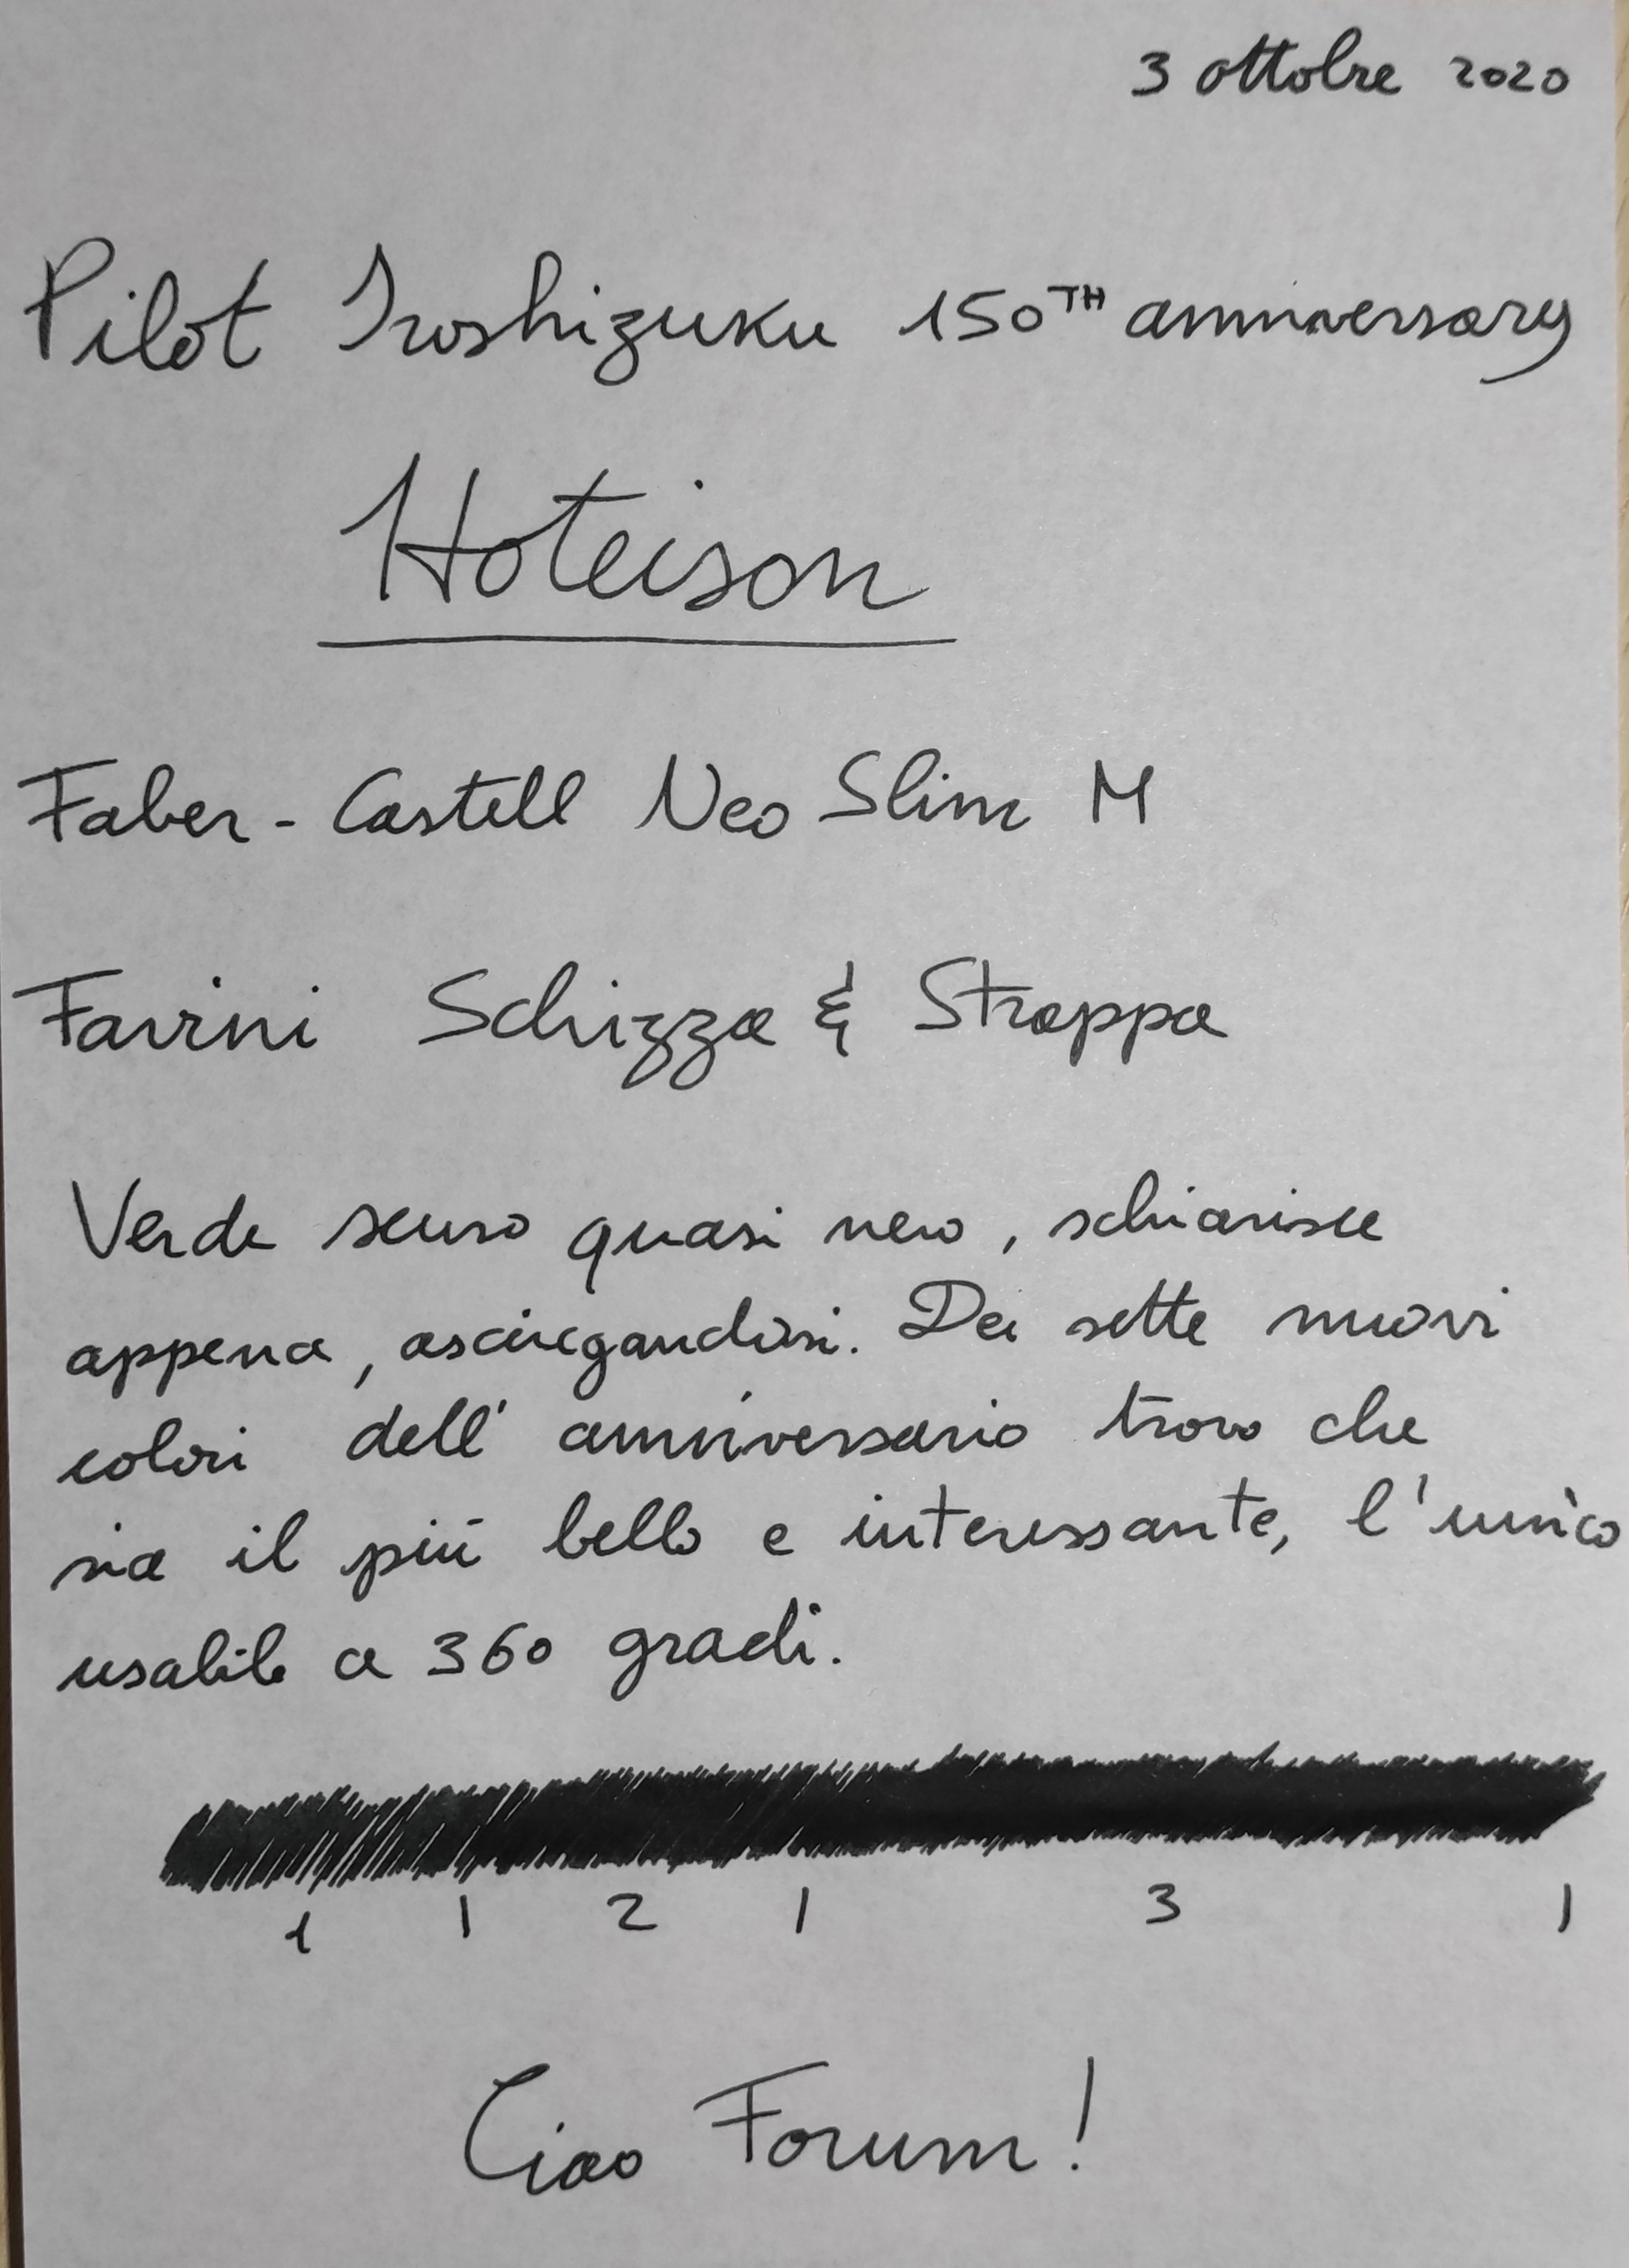 3 ottobre 2020
Pilot Iroshizuku 150TH anniversary
Hoteison
Faber-Castell Neo Slim M
Favini Schizza & Strappa
Verde scuro quasi nero, schiarisce
appena, asciugandosi. Dei sette nuovi
colori dell'anniversario trovo che
sia il più bello e interessante, l'unico
usabile a 360 gradi.
1 1 2 1 3 1
Ciao Forum!